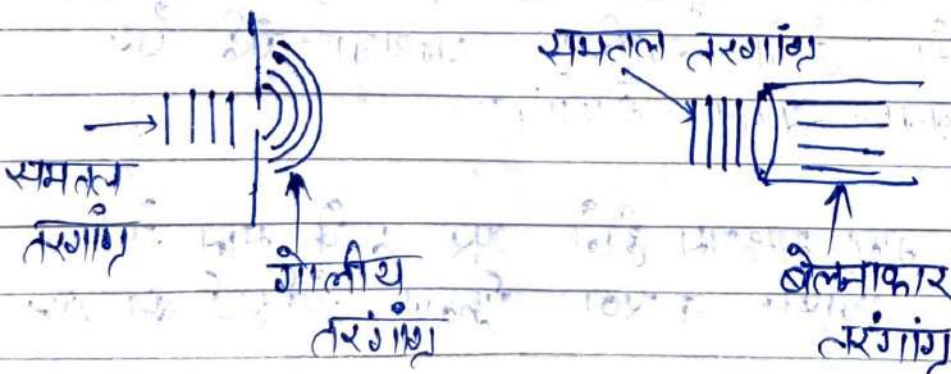 समतल तरगांग्र
समतल
तरगांग्र
गोलीय
तरंगांग्र
बेलनाकार
तरंगांग्र